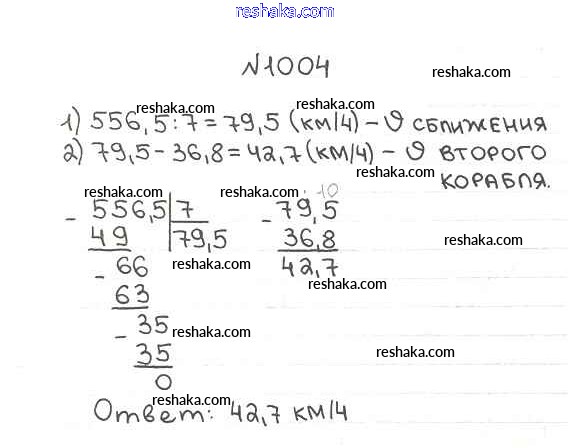 reshaka.com
N1004
reshaka.com
reshaka.com
reshaka.com
1) 556,5 : 7 = 79,5 (км/ч) – υ сближения
2) 79,5 – 36,8 = 42,7 (км/ч) – υ второго
корабля.
reshaka.com
reshaka.com
reshaka.com
10
- 556,5 | 7
- 79,5
49
79,5
36,8
reshaka.com
- 66
reshaka.com
42,7
reshaka.com
63
- 35
reshaka.com
35
reshaka.com
0
reshaka.com
Ответ: 42,7 км/ч
reshaka.com
reshaka.com